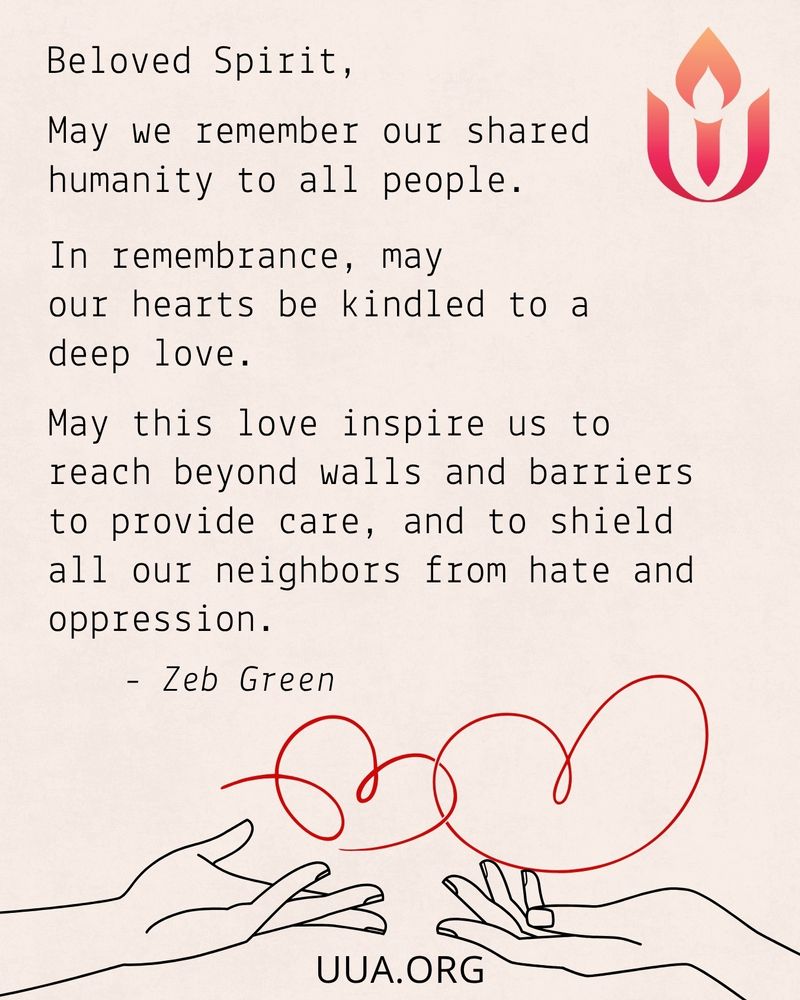 Beloved Spirit,
May we remember our shared
humanity to all people.
In remembrance, may
our hearts be kindled to a
deep love.
May this love inspire us to
reach beyond walls and barriers
to provide care, and to shield
all our neighbors from hate and
oppression.
- Zeb Green
UUA.ORG